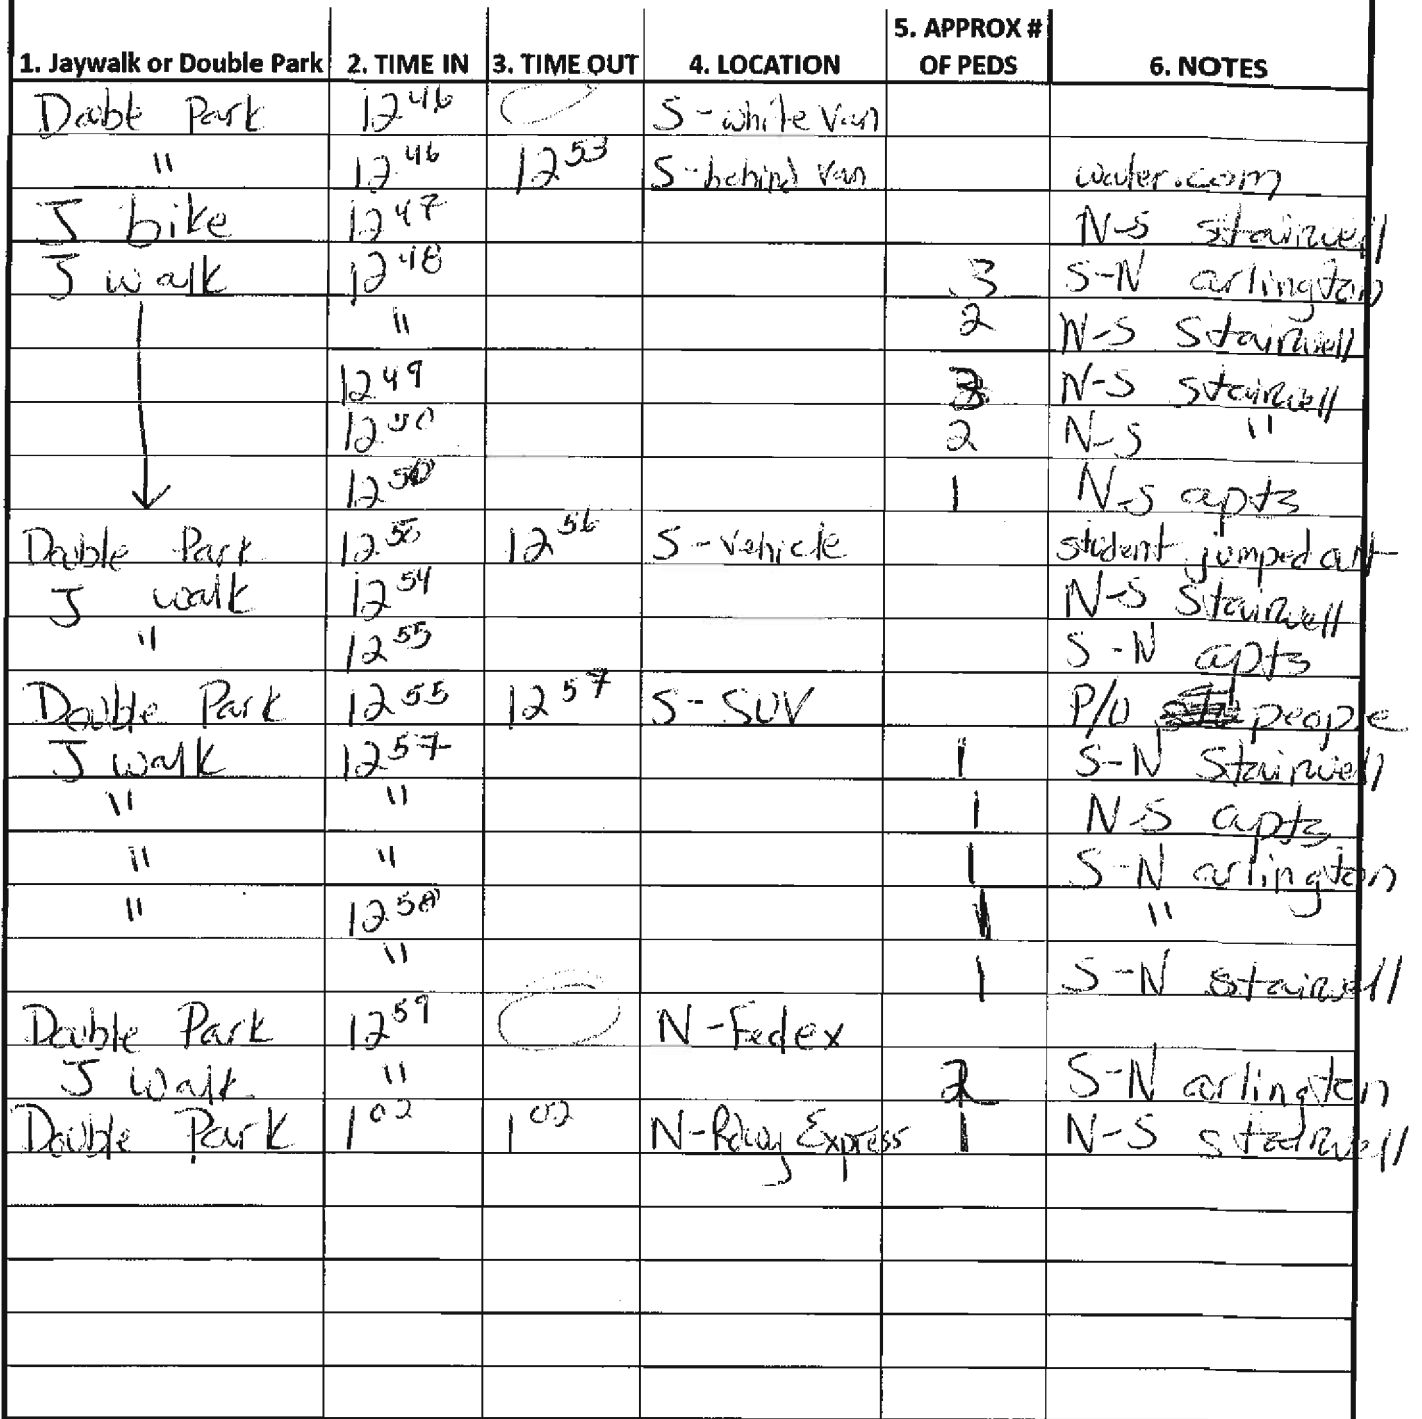 1. Jaywalk or Double Park 2. TIME IN 3. TIME OUT 4. LOCATION 5. APPROX # OF PEDS 6. NOTES
Double Park 12 46 S - white Van
" 12 46 12 53 S - behind Van water.com
J bike 12 47 N-S stairwell
J walk 12 48 3 S-N arlington
" 2 N-S Stairwell
12 49 3 N-S stairwell
12 50 2 N-S "
12 50 1 N-S apts
Double Park 12 12 56 S - Vehicle student jumped out
J walk 12 54 N-S Stairwell
" 12 55 S-N apts
Double Park 12 55 12 57 S - SUV P/U people
J walk 12 57 1 S-N Stairwell
" " 1 N-S apts
" " 1 S-N arlington
" 12 58 1 "
" 1 S-N stairwell
Double Park 12 59 N - Fedex
J walk " 2 S-N arlington
Double Park 1 02 1 02 N - Express 1 N-S stairwell